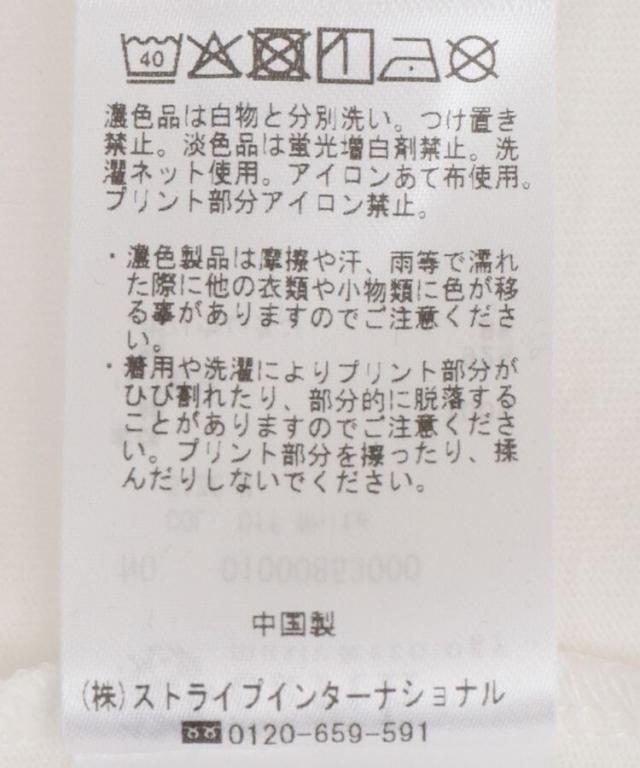 40
濃色品は白物と分別洗い。つけ置き
禁止。淡色品は蛍光増白剤禁止。洗
濯ネット使用。アイロンあて布使用。
プリント部分アイロン禁止。
・濃色製品は摩擦や汗、雨等で濡れ
た際に他の衣類や小物類に色が移
る事がありますのでご注意くださ
い。
・着用や洗濯によりプリント部分が
ひび割れたり、部分的に脱落する
ことがありますのでご注意くださ
い。プリント部分を擦ったり、揉
んだりしないでください。
中国製
(株)ストライプインターナショナル
0120-659-591